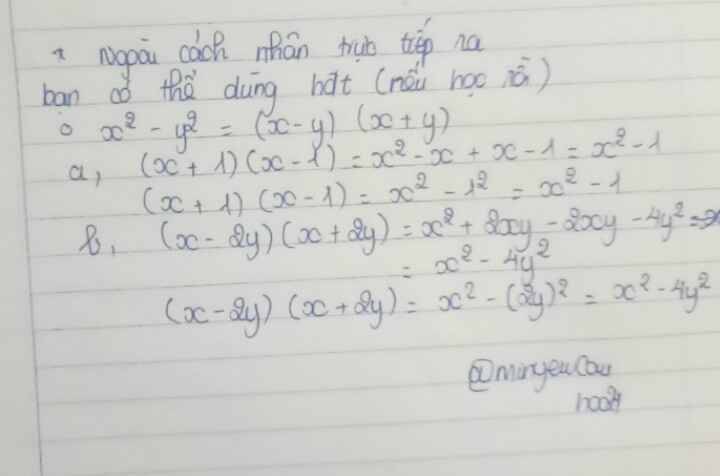 * Ngoài cách nhân trực tiếp ra
bạn có thể dùng hđt (nếu học rồi)
o x² - y² = (x-y) (x+y)
a, (x+1)(x-1) = x² - x + x - 1 = x² - 1
(x+1) (x-1) = x² - 1² = x² - 1
b, (x-2y)(x+2y) = x² + 2xy - 2xy - 4y² =
= x² - 4y²
(x-2y) (x+2y) = x² - (2y)² = x² - 4y²